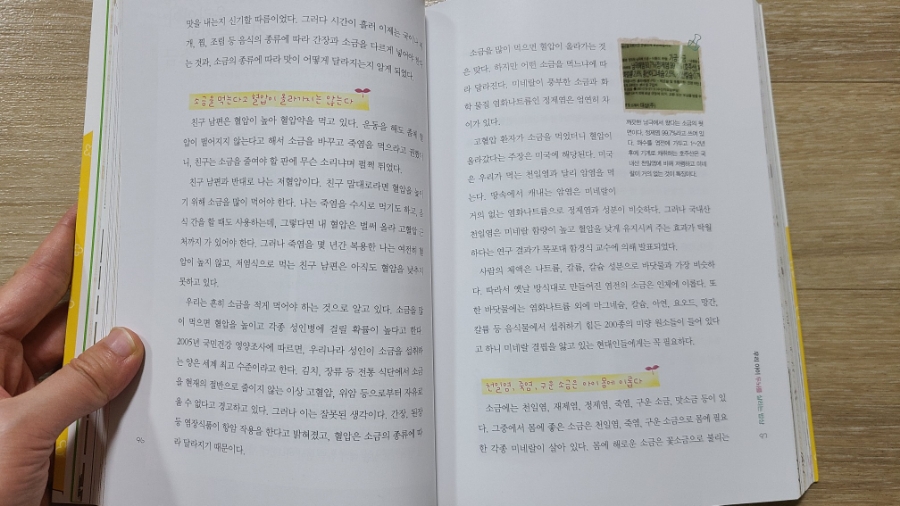 맛을 내는지 신기할 따름이었다. 그러다 시간이 흘러 이제는
개, 찜, 조림 등 음식의 종류에 따라 간장과 소금을 다르게 넣어야
는 것과, 소금의 종류에 따라 맛이 어떻게 달라지는지 알게 되었다.
소금을 먹는다고 혈압이 올라가지는 않는다
친구 남편은 혈압이 높아 혈압약을 먹고 있다. 운동을 해도
압이 떨어지지 않는다고 해서 소금을 바꾸고 죽염을 먹으라고
니, 친구는 소금을 줄여야 할 판에 무슨 소리냐며 펄쩍 뛰었다.
친구 남편과 반대로 나는 저혈압이다. 친구 말대로라면 혈압을
기 위해 소금을 많이 먹어야 한다. 나는 죽염을 수시로 먹기도 하고,
식 간을 할 때도 사용하는데, 그렇다면 내 혈압은 벌써 올라 고혈압
처까지 가 있어야 한다. 그러나 죽염을 몇 년간 복용한 나는 여전히
압이 높지 않고, 저염식으로 먹는 친구 남편은 아직도 혈압을
못하고 있다.
우리는 흔히 소금을 적게 먹어야 하는 것으로 알고 있다. 소금을 많
이 먹으면 혈압을 높이고 각종 성인병에 걸릴 확률이 높다고 한다.
2005년 국민건강 영양조사에 따르면, 우리나라 성인이 소금을 섭취하
는 양은 세계 최고 수준이라고 한다. 김치, 장류 등 전통 식단에서 소금
을 현재의 절반으로 줄이지 않는 이상 고혈압, 위암 등으로부터 자유로
울 수 없다고 경고하고 있다. 그러나 이는 잘못된 생각이다. 간장, 된장
등 염장식품이 항암 작용을 한다고 밝혀졌고, 혈압은 소금의 종류에 따
라 달라지기 때문이다.
96
소금을 많이 먹으면 혈압이 올라가는 것
은 맞다. 하지만 어떤 소금을 먹느냐에 따
라 달라진다. 미네랄이 풍부한 소금과 화
학 물질 염화나트륨인 정제염은 엄연히 차
이가 있다.
고혈압 환자가 소금을 먹었더니 혈압이
올라갔다는 주장은 미국에 해당된다. 미국
은 우리가 먹는 천일염과 달리 암염을 먹
는다. 땅속에서 캐내는 암염은 미네랄이
거의 없는 염화나트륨으로 정제염과 성분이 비슷하다. 그러나 국내산
천일염은 미네랄 함량이 높고 혈압을 낮게 유지시켜 주는 효과가 탁월
하다는 연구 결과가 목포대 함경식 교수에 의해 발표되었다.
사람의 체액은 나트륨, 칼륨, 칼슘 성분으로 바닷물과 가장 비슷하
다. 따라서 옛날 방식대로 만들어진 염전의 소금은 인체에 이롭다. 또
한 바닷물에는 염화나트륨 외에 마그네슘, 칼슘, 아연, 요오드, 망간,
칼륨 등 음식물에서 섭취하기 힘든 200종의 미량 원소들이 들어 있다
고 하니 미네랄 결핍을 앓고 있는 현대인들에게는 꼭 필요하다.
천일염, 죽염, 구운 소금은 아이 몸에 이롭다
소금에는 천일염, 재제염, 정제염, 죽염, 구운 소금, 맛소금 등이 있
다. 그중에서 몸에 좋은 소금은 천일염, 죽염, 구운 소금으로 몸에 필요
한 각종 미네랄이 살아 있다. 몸에 해로운 소금은 꽃소금으로 불리는
97